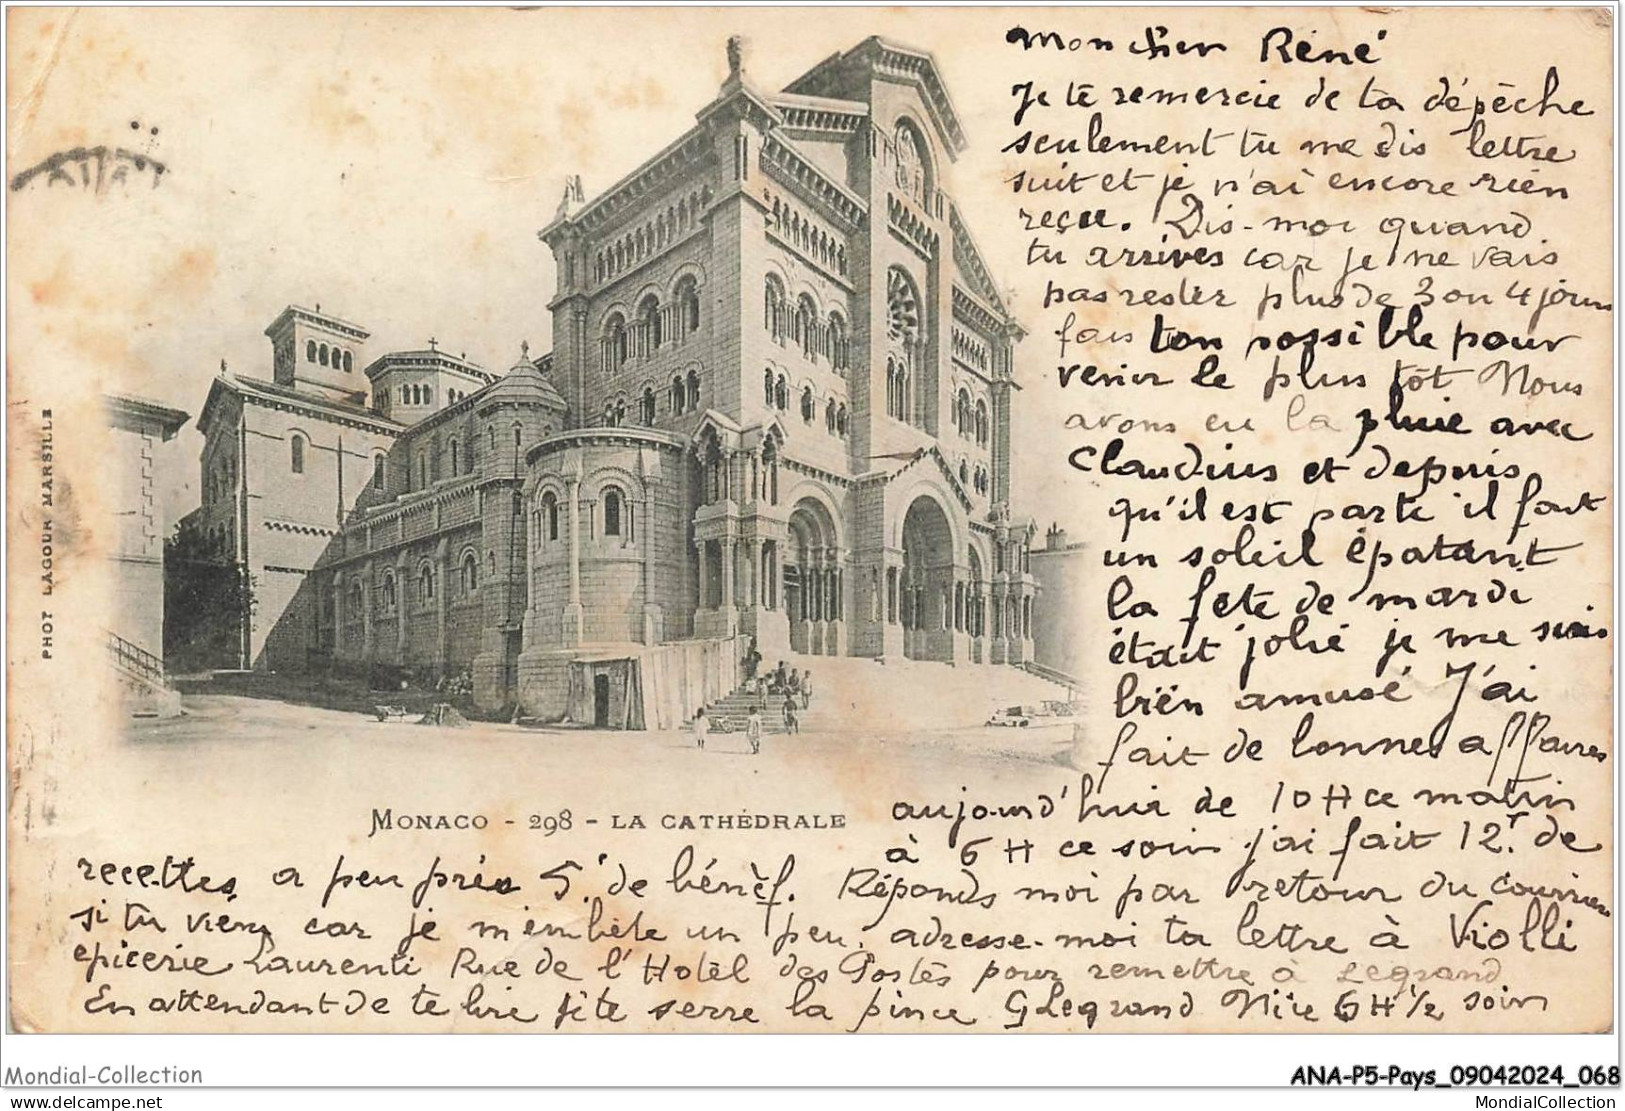 Mon cher René
Je te remercie de ta dépèche
seulement tu me dis lettre
suit et je n'ai encore rien
reçu. Dis-moi quand
tu arrives car je ne vais
pas rester plus de 3 ou 4 jours
fais ton possible pour
venir le plus tôt Nous
avons eu la pluie avec
Claudius et depuis
qu'il est parti il fait
un soleil épatant
la fete de mardi
était jolie je me suis
bien amusé J'ai
fait de bonnes affaires
aujourd'hui de 10 H ce matin
à 6 H ce soir j'ai fait 12f. de
recettes a peu près 5f de bénéf. Réponds moi par retour du courrier
si tu viens car je m'embête un peu. adresse-moi ta lettre à Violli
epicerie Laurenti Rue de l'Hotel des Postes pour remettre à Legrand
En attendant de te lire je te serre la pince G Legrand Nice 6 H ½ soir
MONACO - 298 - LA CATHÉDRALE
PHOT LACOUR MARSEILLE
Mondial-Collection
ANA-P5-Pays_09042024_068
delcampe.net
MondialCollection